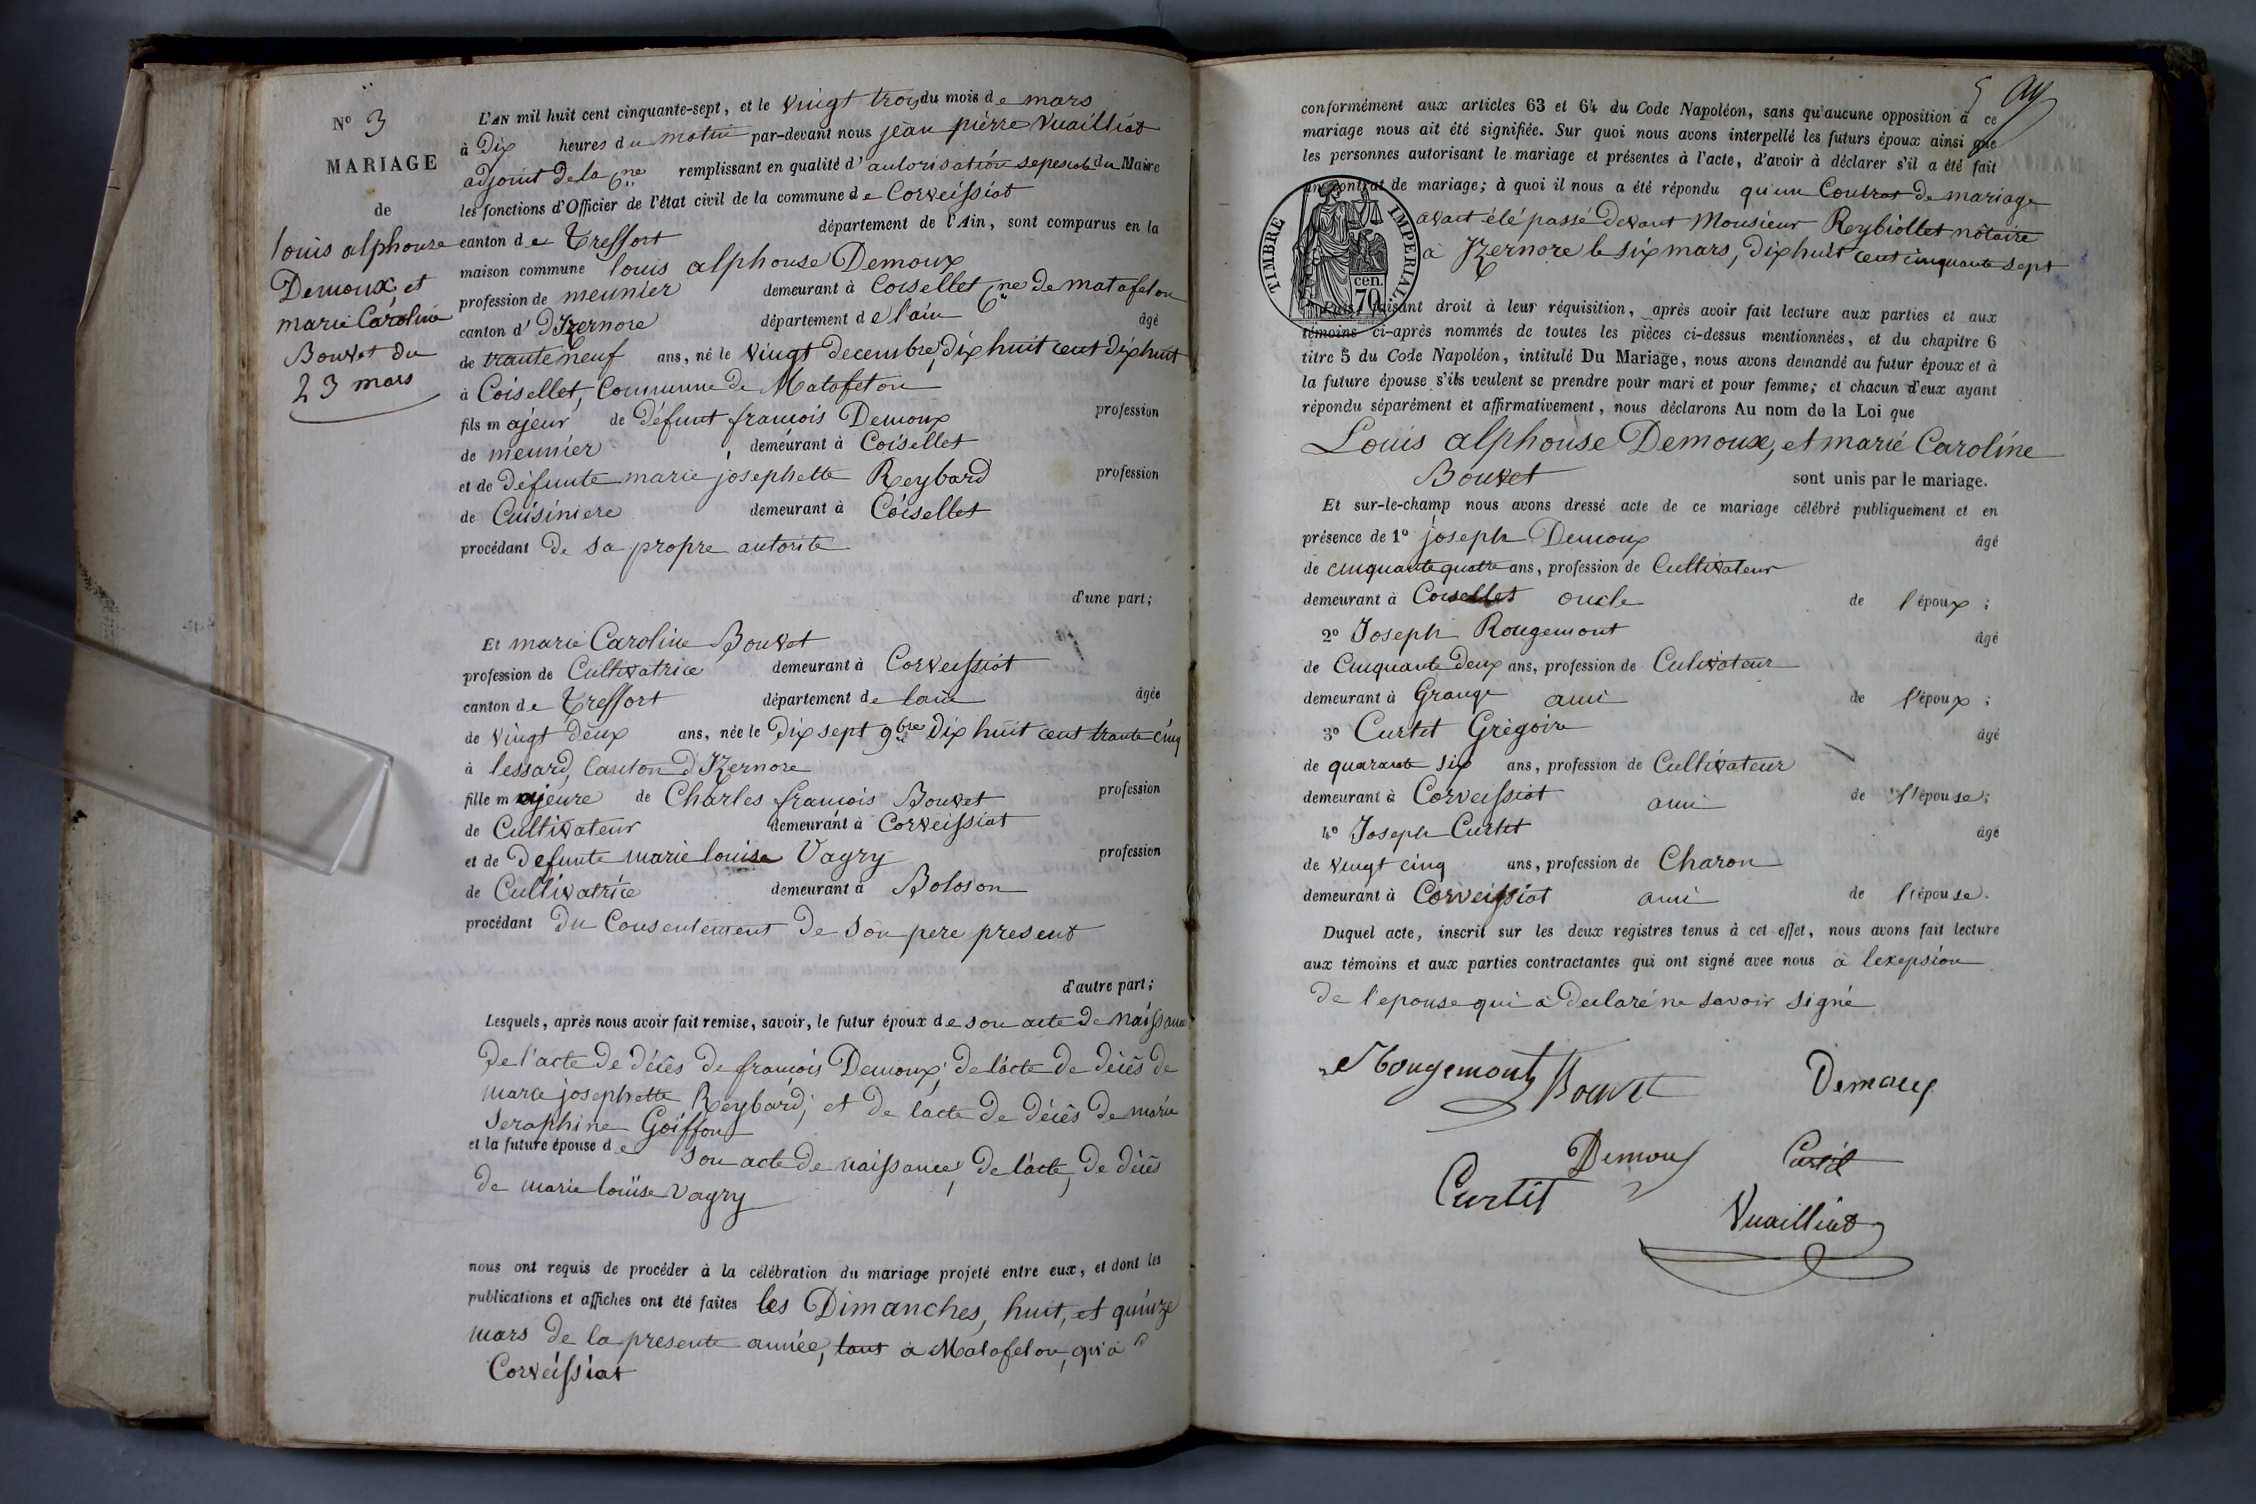 N° 3
MARIAGE
de
louis alphonse
Demoux, et
marie Caroline
Bouvet du
23 mars
L'AN mil huit cent cinquante-sept, et le vingt trois du mois de mars
à Dix heures du matin par-devant nous jean pierre Vuailliat
adjoint de la Cne remplissant en qualité d'autorisation du Maire
les fonctions d'Officier de l'état civil de la commune de Corveissiat
canton de Treffort département de l'Ain, sont comparus en la
maison commune louis alphonse Demoux
profession de meunier demeurant à Coisellet Cne de matafelon
canton d' D'Izernore département de l'ain âgé
de trante neuf ans, né le vingt decembre, dix huit cent dix huit
à Coisellet, Commune de Matafelon
fils majeur de défunt francois Demoux profession
de meunier demeurant à Coisellet
et de défunte marie josephette Reybard profession
de Cuisiniere demeurant à Coisellet
procédant De sa propre autorite
d'une part;
Et marie Caroline Bouvet
profession de Cultivatrice demeurant à Corveissiat
canton de Treffort département de lain âgée
de vingt deux ans, née le Dix sept 9bre Dix huit cent trante cinq
à lessard, Canton D'Izernore
fille majeure de Charles francois Bouvet profession
de Cultivateur demeurant à Corveissiat
et de Defunte marie louise Vagry profession
de Cultivatrice demeurant à Boloson
procédant du Consentement De son pere present
d'autre part;
Lesquels, après nous avoir fait remise, savoir, le futur époux de son acte de Naissance
De l'acte De décès de francois Demoux, de l'acte De décès de
marie josephette Reybard; et De l'acte De décès De marie
Seraphine Goiffon
et la future épouse de son acte De naissance, De l'acte, De décès
de marie louise Vagry
nous ont requis de procéder à la célébration du mariage projeté entre eux, et dont les
publications et affiches ont été faites les Dimanches, huit, et quinze
mars De la presente année, tant a Matafelon, qu'à
Corveissiat
5
conformément aux articles 63 et 64 du Code Napoléon, sans qu'aucune opposition à ce
mariage nous ait été signifiée. Sur quoi nous avons interpellé les futurs époux ainsi que
les personnes autorisant le mariage et présentes à l'acte, d'avoir à déclarer s'il a été fait
un contrat de mariage; à quoi il nous a été répondu qu'un Contrat De mariage
avait élé passé Devant Monsieur Reybiollet notaire
a Izernore le six mars, dix huit cent cinquante sept
TIMBRE IMPERIAL
70 cen.
Puis, faisant droit à leur réquisition, après avoir fait lecture aux parties et aux
témoins ci-après nommés de toutes les pièces ci-dessus mentionnées, et du chapitre 6
titre 5 du Code Napoléon, intitulé Du Mariage, nous avons demandé au futur époux et à
la future épouse s'ils veulent se prendre pour mari et pour femme; et chacun d'eux ayant
répondu séparément et affirmativement, nous déclarons Au nom de la Loi que
Louis alphonse Demoux, et marie Caroline
Bouvet sont unis par le mariage.
Et sur-le-champ nous avons dressé acte de ce mariage célébré publiquement et en
présence de 1° joseph Demoux âgé
de cinquante quatre ans, profession de Cultivateur
demeurant à Coisellet oncle de l'époux;
2° Joseph Rougemont âgé
de Cinquante Deux ans, profession de Cultivateur
demeurant à Grange ami de l'époux;
3° Curtet Grègoire âgé
de quarante six ans, profession de Cultivateur
demeurant à Corveissiat ami de l'épouse;
4° Joseph Curtet âgé
de vingt cinq ans, profession de Charon
demeurant à Corveissiat ami de l'épouse.
Duquel acte, inscrit sur les deux registres tenus à cet effet, nous avons fait lecture
aux témoins et aux parties contractantes qui ont signé avec nous à lexepsion
De l'epouse qui a Declaré ne savoir signé
Rougemont Bouvet Demoux
Demoux
Curtit
Vuailliat